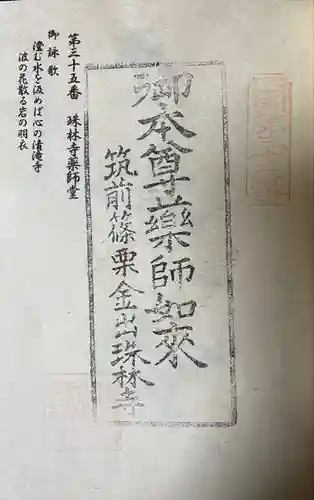 第三十五番　珠林寺薬師堂
御詠歌
澄む水を汲めば心の清滝寺
波の花散る岩の羽衣
御本尊藥師如來
筑前篠栗金出珠林寺